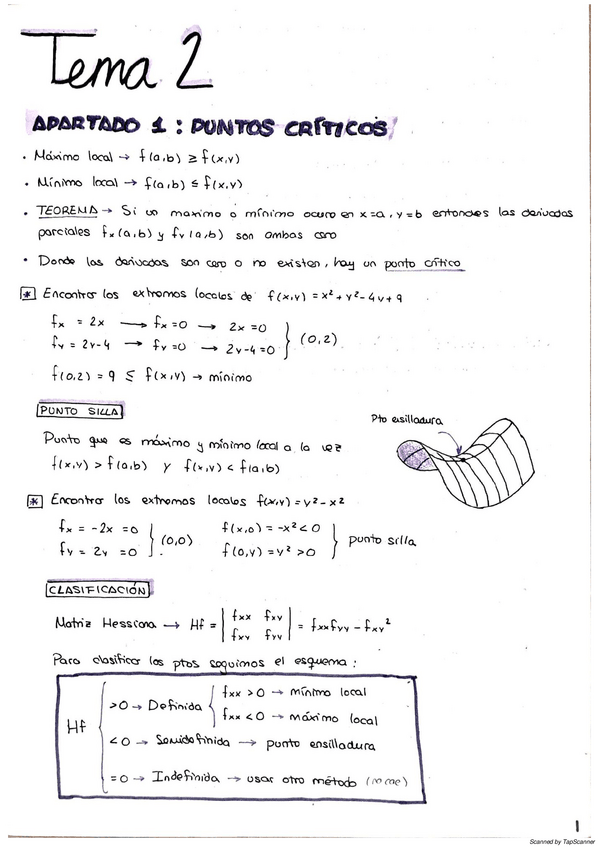 Tema 2
APARTADO 1 : PUNTOS CRÍTICOS
• Máximo local → f(a,b) ≥ f(x,y)
• Mínimo local → f(a,b) ≤ f(x,y)
• TEOREMA → Si un maximo o mínimo ocurre en x=a, y=b entonces las derivadas
parciales fx(a,b) y fy(a,b) son ambas cero
• Donde las derivadas son cero o no existen, hay un punto crítico
* Encontrar los extremos locales de f(x,y) = x² + y² - 4y + 9
fx = 2x → fx = 0 → 2x = 0
fy = 2y-4 → fy = 0 → 2y-4 = 0 } (0,2)
f(0,2) = 9 ≤ f(x,y) → mínimo
PUNTO SILLA
Pto ensilladura
Punto que es máximo y mínimo local a la vez
f(x,y) > f(a,b) y f(x,y) < f(a,b)
* Encontrar los extremos locales f(x,y) = y² - x²
fx = -2x = 0 f(x,0) = -x² < 0
fy = 2y = 0 } (0,0) f(0,y) = y² > 0 } punto silla
CLASIFICACIÓN
Matriz Hessiana → Hf = | fxx fxy | = fxx fyy - fxy²
| fxy fyy |
Para clasificar los ptos seguimos el esquema :
Hf
>0 → Definida { fxx > 0 → mínimo local
fxx < 0 → máximo local
<0 → Semidefinida → punto ensilladura
=0 → Indefinida → usar otro método (no cae)
1
Scanned by TapScanner